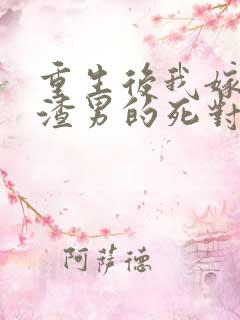 重生後我嫁
渣男的死對
阿薩德